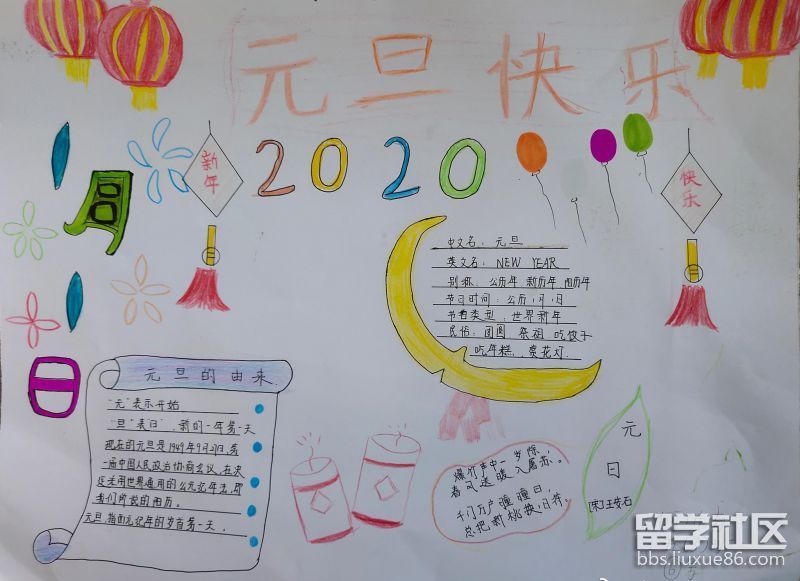 元旦快乐
新年
2020
快乐
1月1日
中文名：元旦
英文名：NEW YEAR
别称：公历年 新历年 阳历年
节日时间：公历1月1日
节日类型：世界新年
民俗：团圆 祭祖 吃饺子
吃年糕，赏花灯.
元旦的由来
"元"表示开始
"旦"表日"，新的一年第一天
现在的元旦是1949年9月27日,第
一届中国人民政治协商会议，在决
议采用世界通用的公元纪年法，即
我们所说的阳历。
元旦，指公元纪年的岁首第一天。
爆竹声中一岁除，
春风送暖入屠苏。
千门万户曈曈日，
总把新桃换旧符。
元
日
[宋]王安石
留学社区
bbs.liuxue86.com